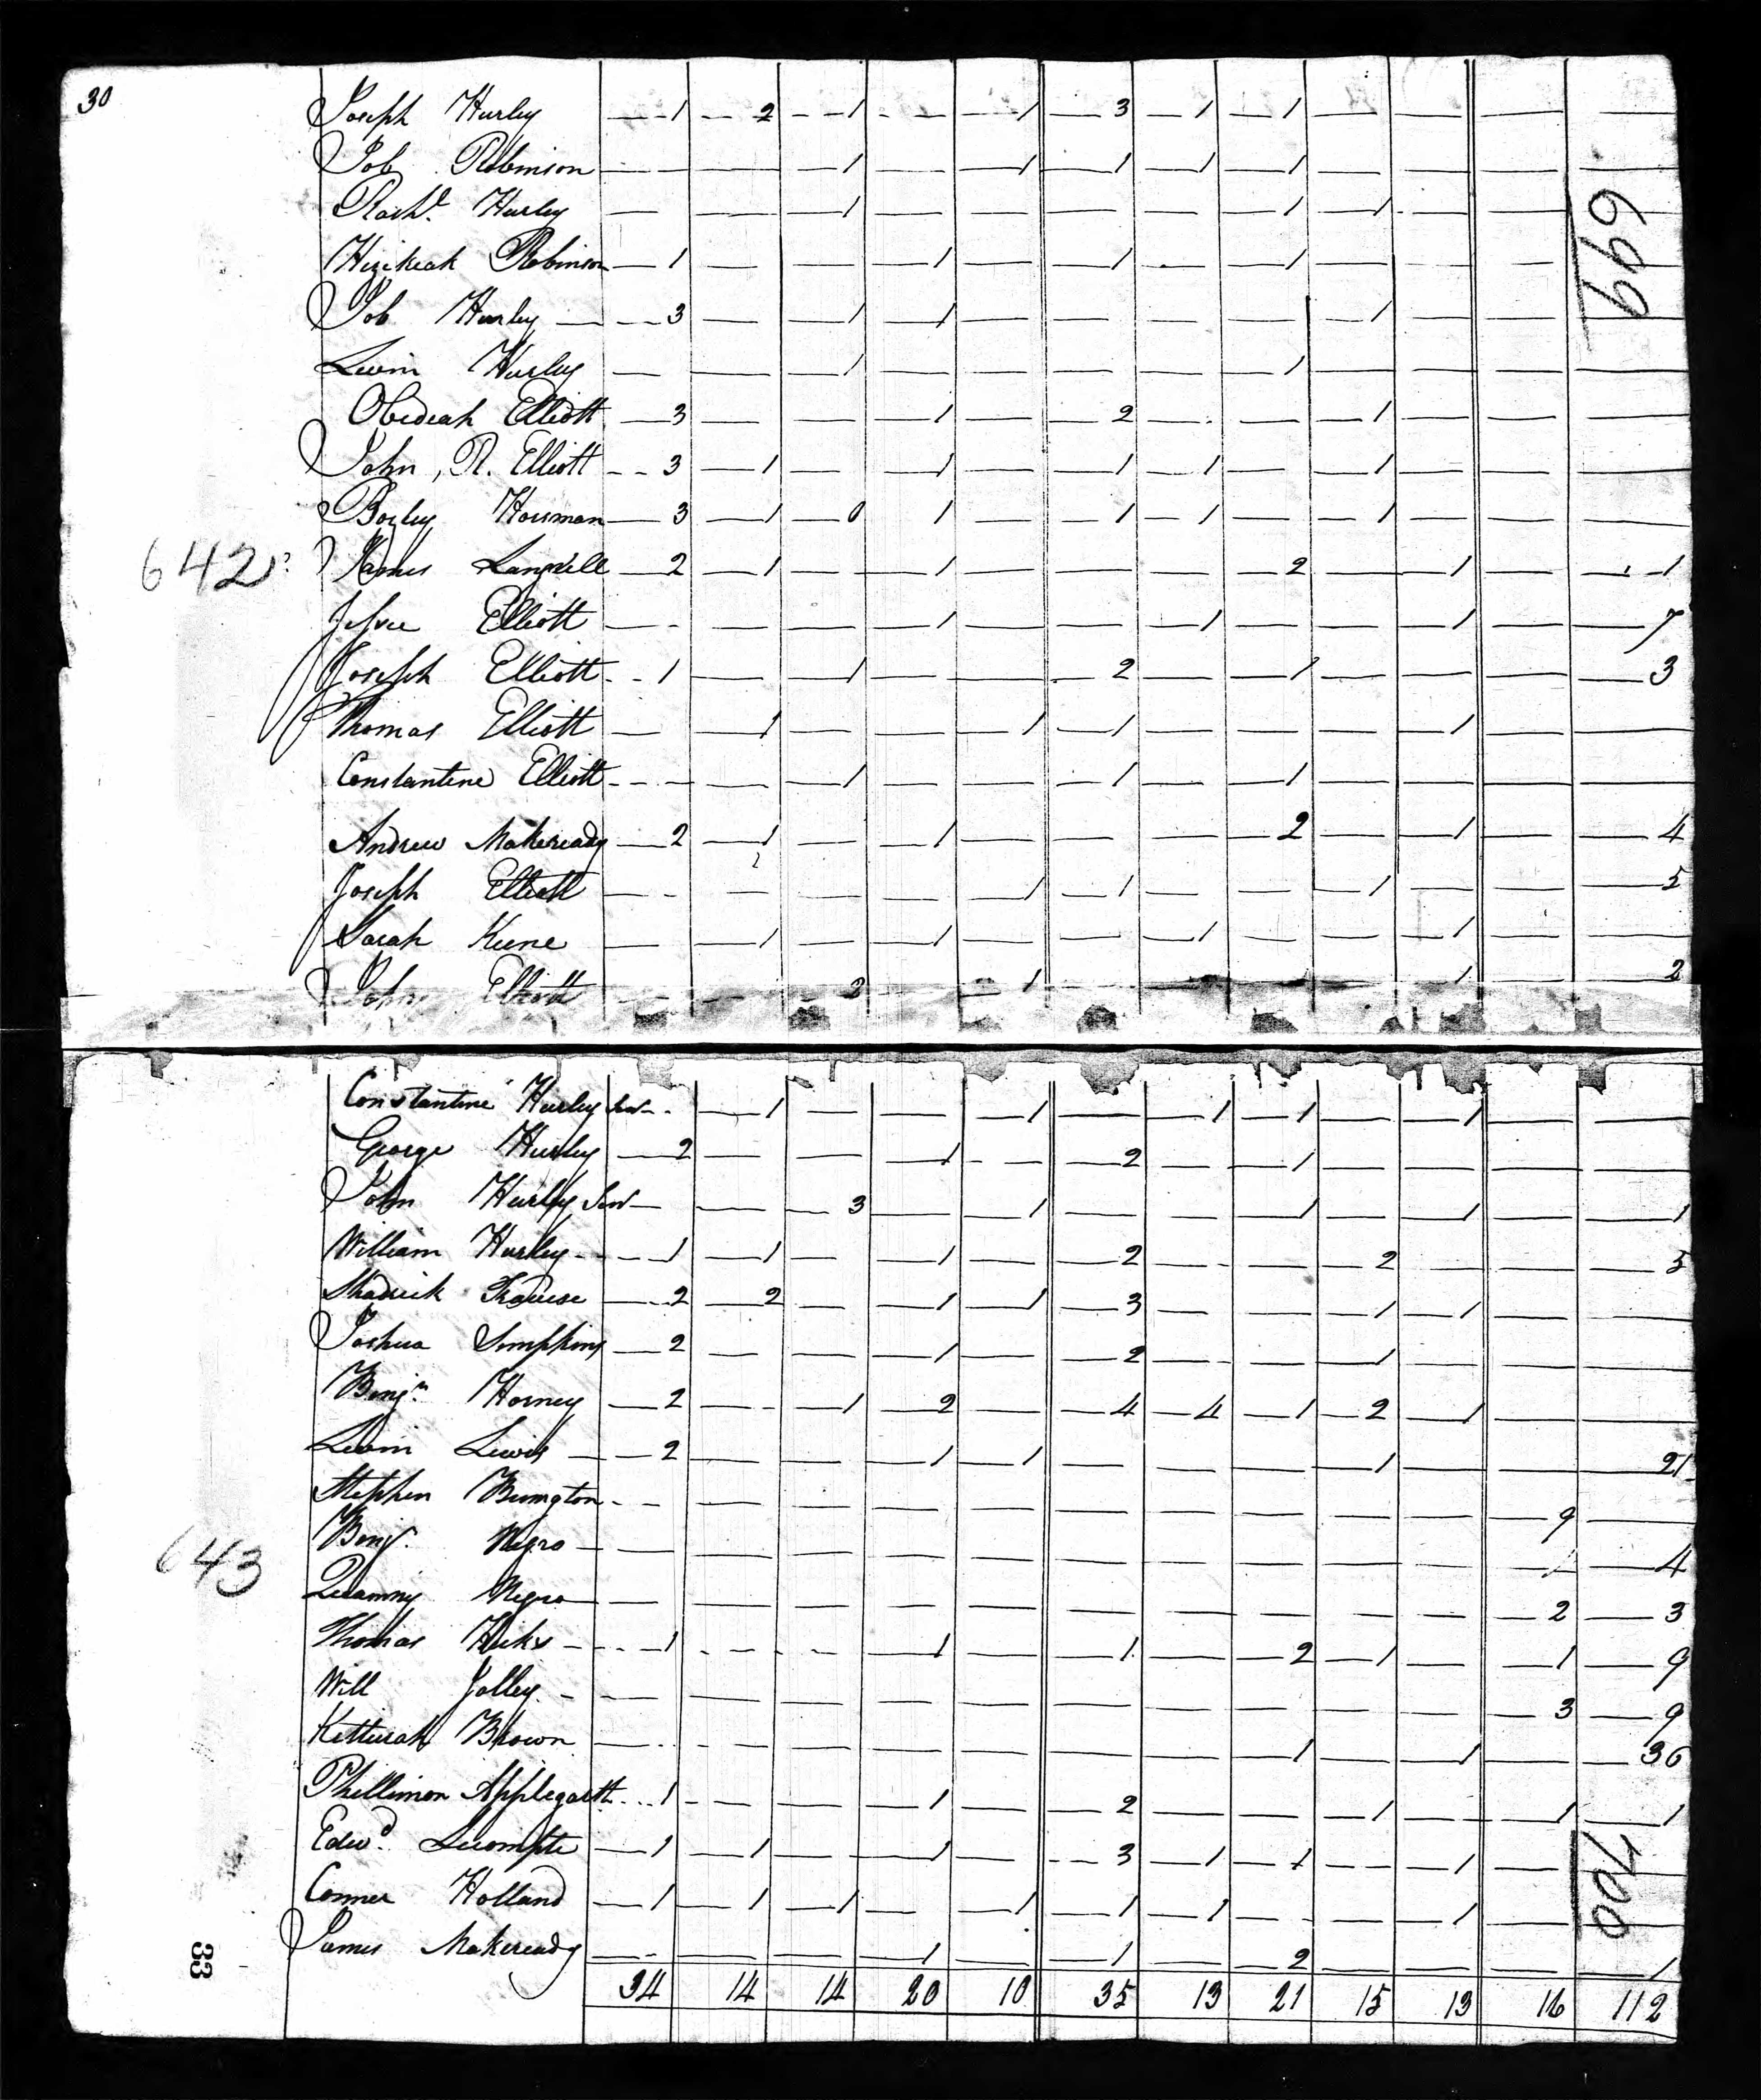 30
Joseph Hurley 1 2 1 1 3 1 1
699
Job Robinson 1 1 1 1 1
Rachl. Hurley 1 1 1
Hezikeah Robinson 1 1 1 1
Job Hurley 3 1 1 1
Levin Hurley 1 1
Obedeah Elliott 3 1 2 1
John, R. Elliott 3 1 1 1 1 1
Bozley Housman 3 1 0 1 1 1 1
642
James Langrill 2 1 1 2 1 1
Jesse Elliott 1 1 1 7
Joseph Elliott 1 1 2 1 3
Thomas Elliott 1 1 1 1
Constantine Elliott 1 1 1
Andrew Makeready 2 1 1 2 1 4
Joseph Elliott 1 1 1 5
Sarah Keene 1 1 1 1
John Elliott 3 1 1 2
Constantine Hurley Senr 1 1 1 1 1
George Hurley 2 1 2 1
John Hurley Senr 3 1 1 1 1
William Hurley 1 1 1 2 2 5
Shadrick Travise 2 2 1 1 3 1 1
Joshua Simpkins 2 1 2 1
Benjn. Horney 2 1 2 4 4 1 2 1
Levin Lewis 2 1 1 1 21
Stephen 9
Benj. Negro 1 4
643
Quammy Negro 2 3
Thomas Hicks 1 1 1 2 1 1 9
Will Jolley 3 9
Kitturah Brown 1 1 36
Phillimon Applegarth 1 1 2 1 1 1
Edwd. Lecompte 1 1 1 3 1 1 1
700
Conner Holland 1 1 1 1 1 1 1
James Makeready 1 1 2 1
33
34 14 14 20 10 35 13 21 15 13 16 112